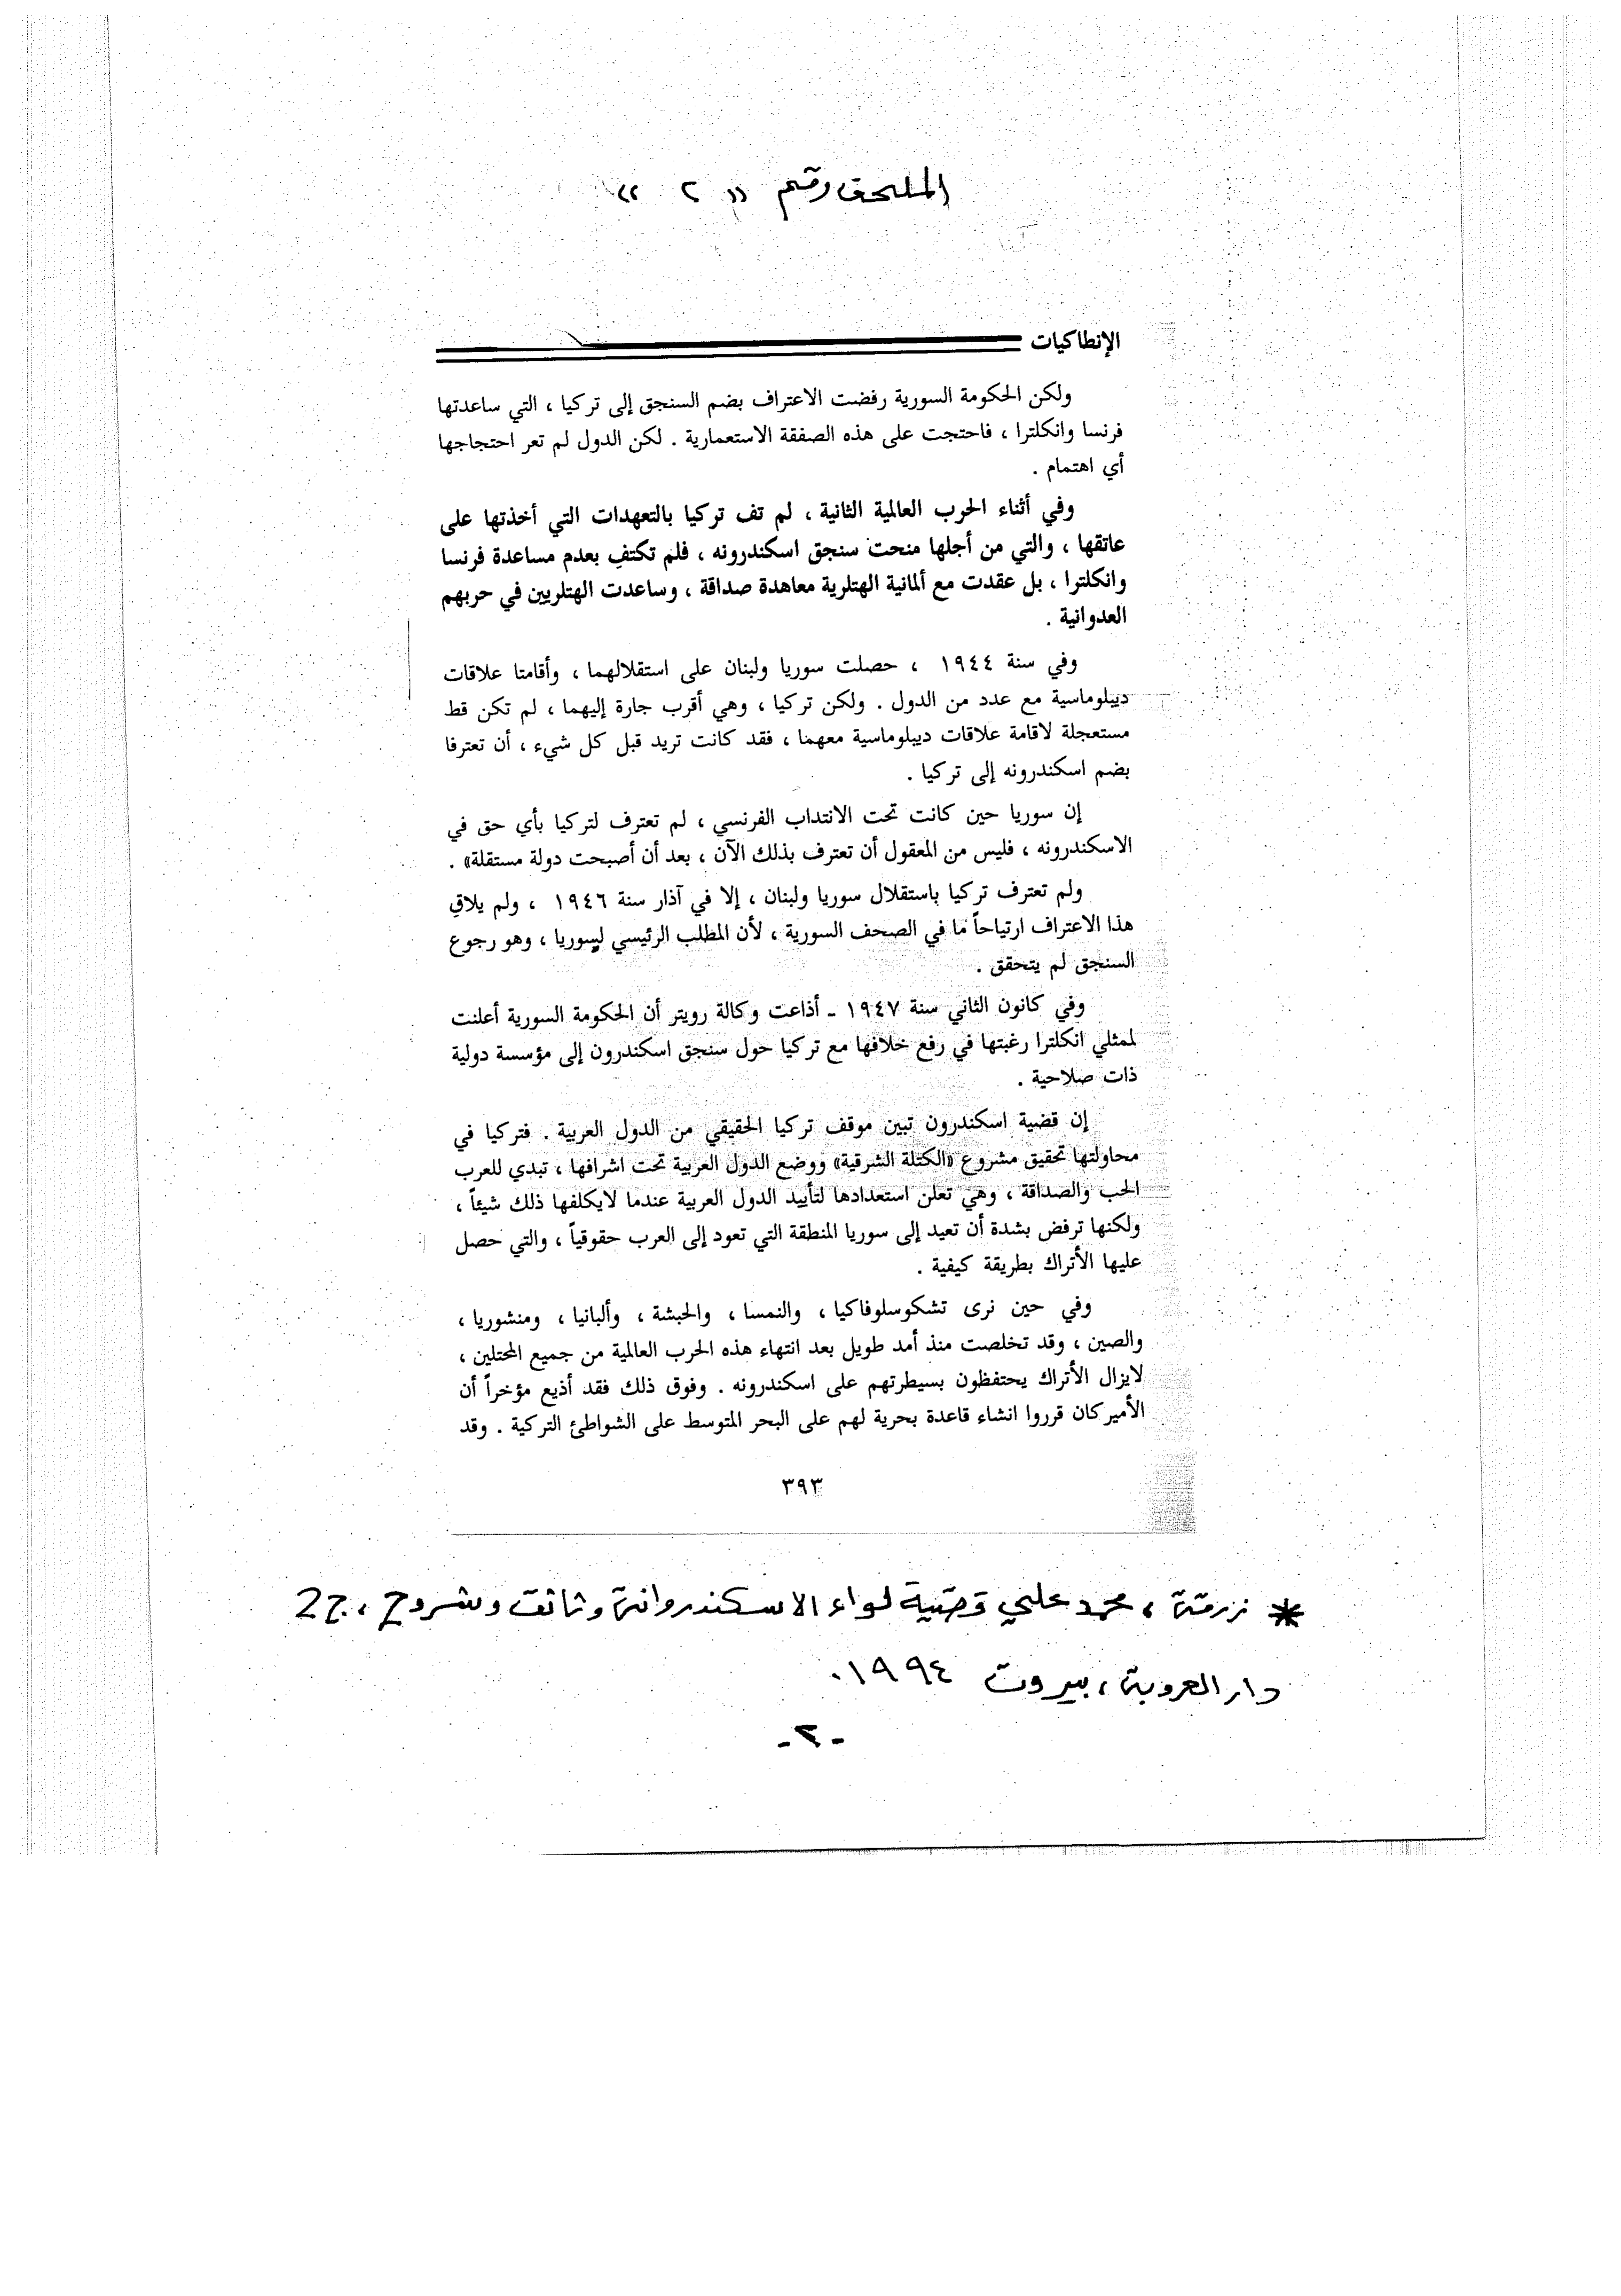 الملحق رقم « ٢ »
الإنطاكيات
ولكن الحكومة السورية رفضت الاعتراف بضم السنجق إلى تركيا ، التي ساعدتها
فرنسا وانكلترا ، فاحتجت على هذه الصفقة الاستعمارية . لكن الدول لم تعر احتجاجها
أي اهتمام .
وفي أثناء الحرب العالمية الثانية ، لم تف تركيا بالتعهدات التي أخذتها على
عاتقها ، والتي من أجلها منحت سنجق اسكندرونه ، فلم تكتفِ بعدم مساعدة فرنسا
وانكلترا ، بل عقدت مع ألمانية الهتلرية معاهدة صداقة ، وساعدت الهتلريين في حربهم
العدوانية .
وفي سنة ١٩٤٤ ، حصلت سوريا ولبنان على استقلالهما ، وأقامتا علاقات
ديبلوماسية مع عدد من الدول . ولكن تركيا ، وهي أقرب جارة إليهما ، لم تكن قط
مستعجلة لاقامة علاقات ديبلوماسية معهما ، فقد كانت تريد قبل كل شيء ، أن تعترفا
بضم اسكندرونه إلى تركيا .
إن سوريا حين كانت تحت الانتداب الفرنسي ، لم تعترف لتركيا بأي حق في
الاسكندرونه ، فليس من المعقول أن تعترف بذلك الآن ، بعد أن أصبحت دولة مستقلة» .
ولم تعترف تركيا باستقلال سوريا ولبنان ، إلا في آذار سنة ١٩٤٦ ، ولم يلاقِ
هذا الاعتراف ارتياحاً ما في الصحف السورية ، لأن المطلب الرئيسي لسوريا ، وهو رجوع
السنجق لم يتحقق .
وفي كانون الثاني سنة ١٩٤٧ ـ أذاعت وكالة رويتر أن الحكومة السورية أعلنت
لممثلي انكلترا رغبتها في رفع خلافها مع تركيا حول سنجق اسكندرون إلى مؤسسة دولية
ذات صلاحية .
إن قضية اسكندرون تبين موقف تركيا الحقيقي من الدول العربية . فتركيا في
محاولتها تحقيق مشروع «الكتلة الشرقية» ووضع الدول العربية تحت اشرافها ، تبدي للعرب
الحب والصداقة ، وهي تعلن استعدادها لتأييد الدول العربية عندما لايكلفها ذلك شيئاً ،
ولكنها ترفض بشدة أن تعيد إلى سوريا المنطقة التي تعود إلى العرب حقوقياً ، والتي حصل
عليها الأتراك بطريقة كيفية .
وفي حين نرى تشكوسلوفاكيا ، والنمسا ، والحبشة ، وألبانيا ، ومنشوريا ،
والصين ، وقد تخلصت منذ أمد طويل بعد انتهاء هذه الحرب العالمية من جميع المحتلين ،
لايزال الأتراك يحتفظون بسيطرتهم على اسكندرونه . وفوق ذلك فقد أذيع مؤخراً أن
الأميركان قرروا انشاء قاعدة بحرية لهم على البحر المتوسط على الشواطئ التركية . وقد
٣٩٣
* زرقة ، محمد علي قضية لواء الاسكندرونة وثائق وشروح ، ج2
دار العروبة ، بيروت ١٩٩٤.
-٢-